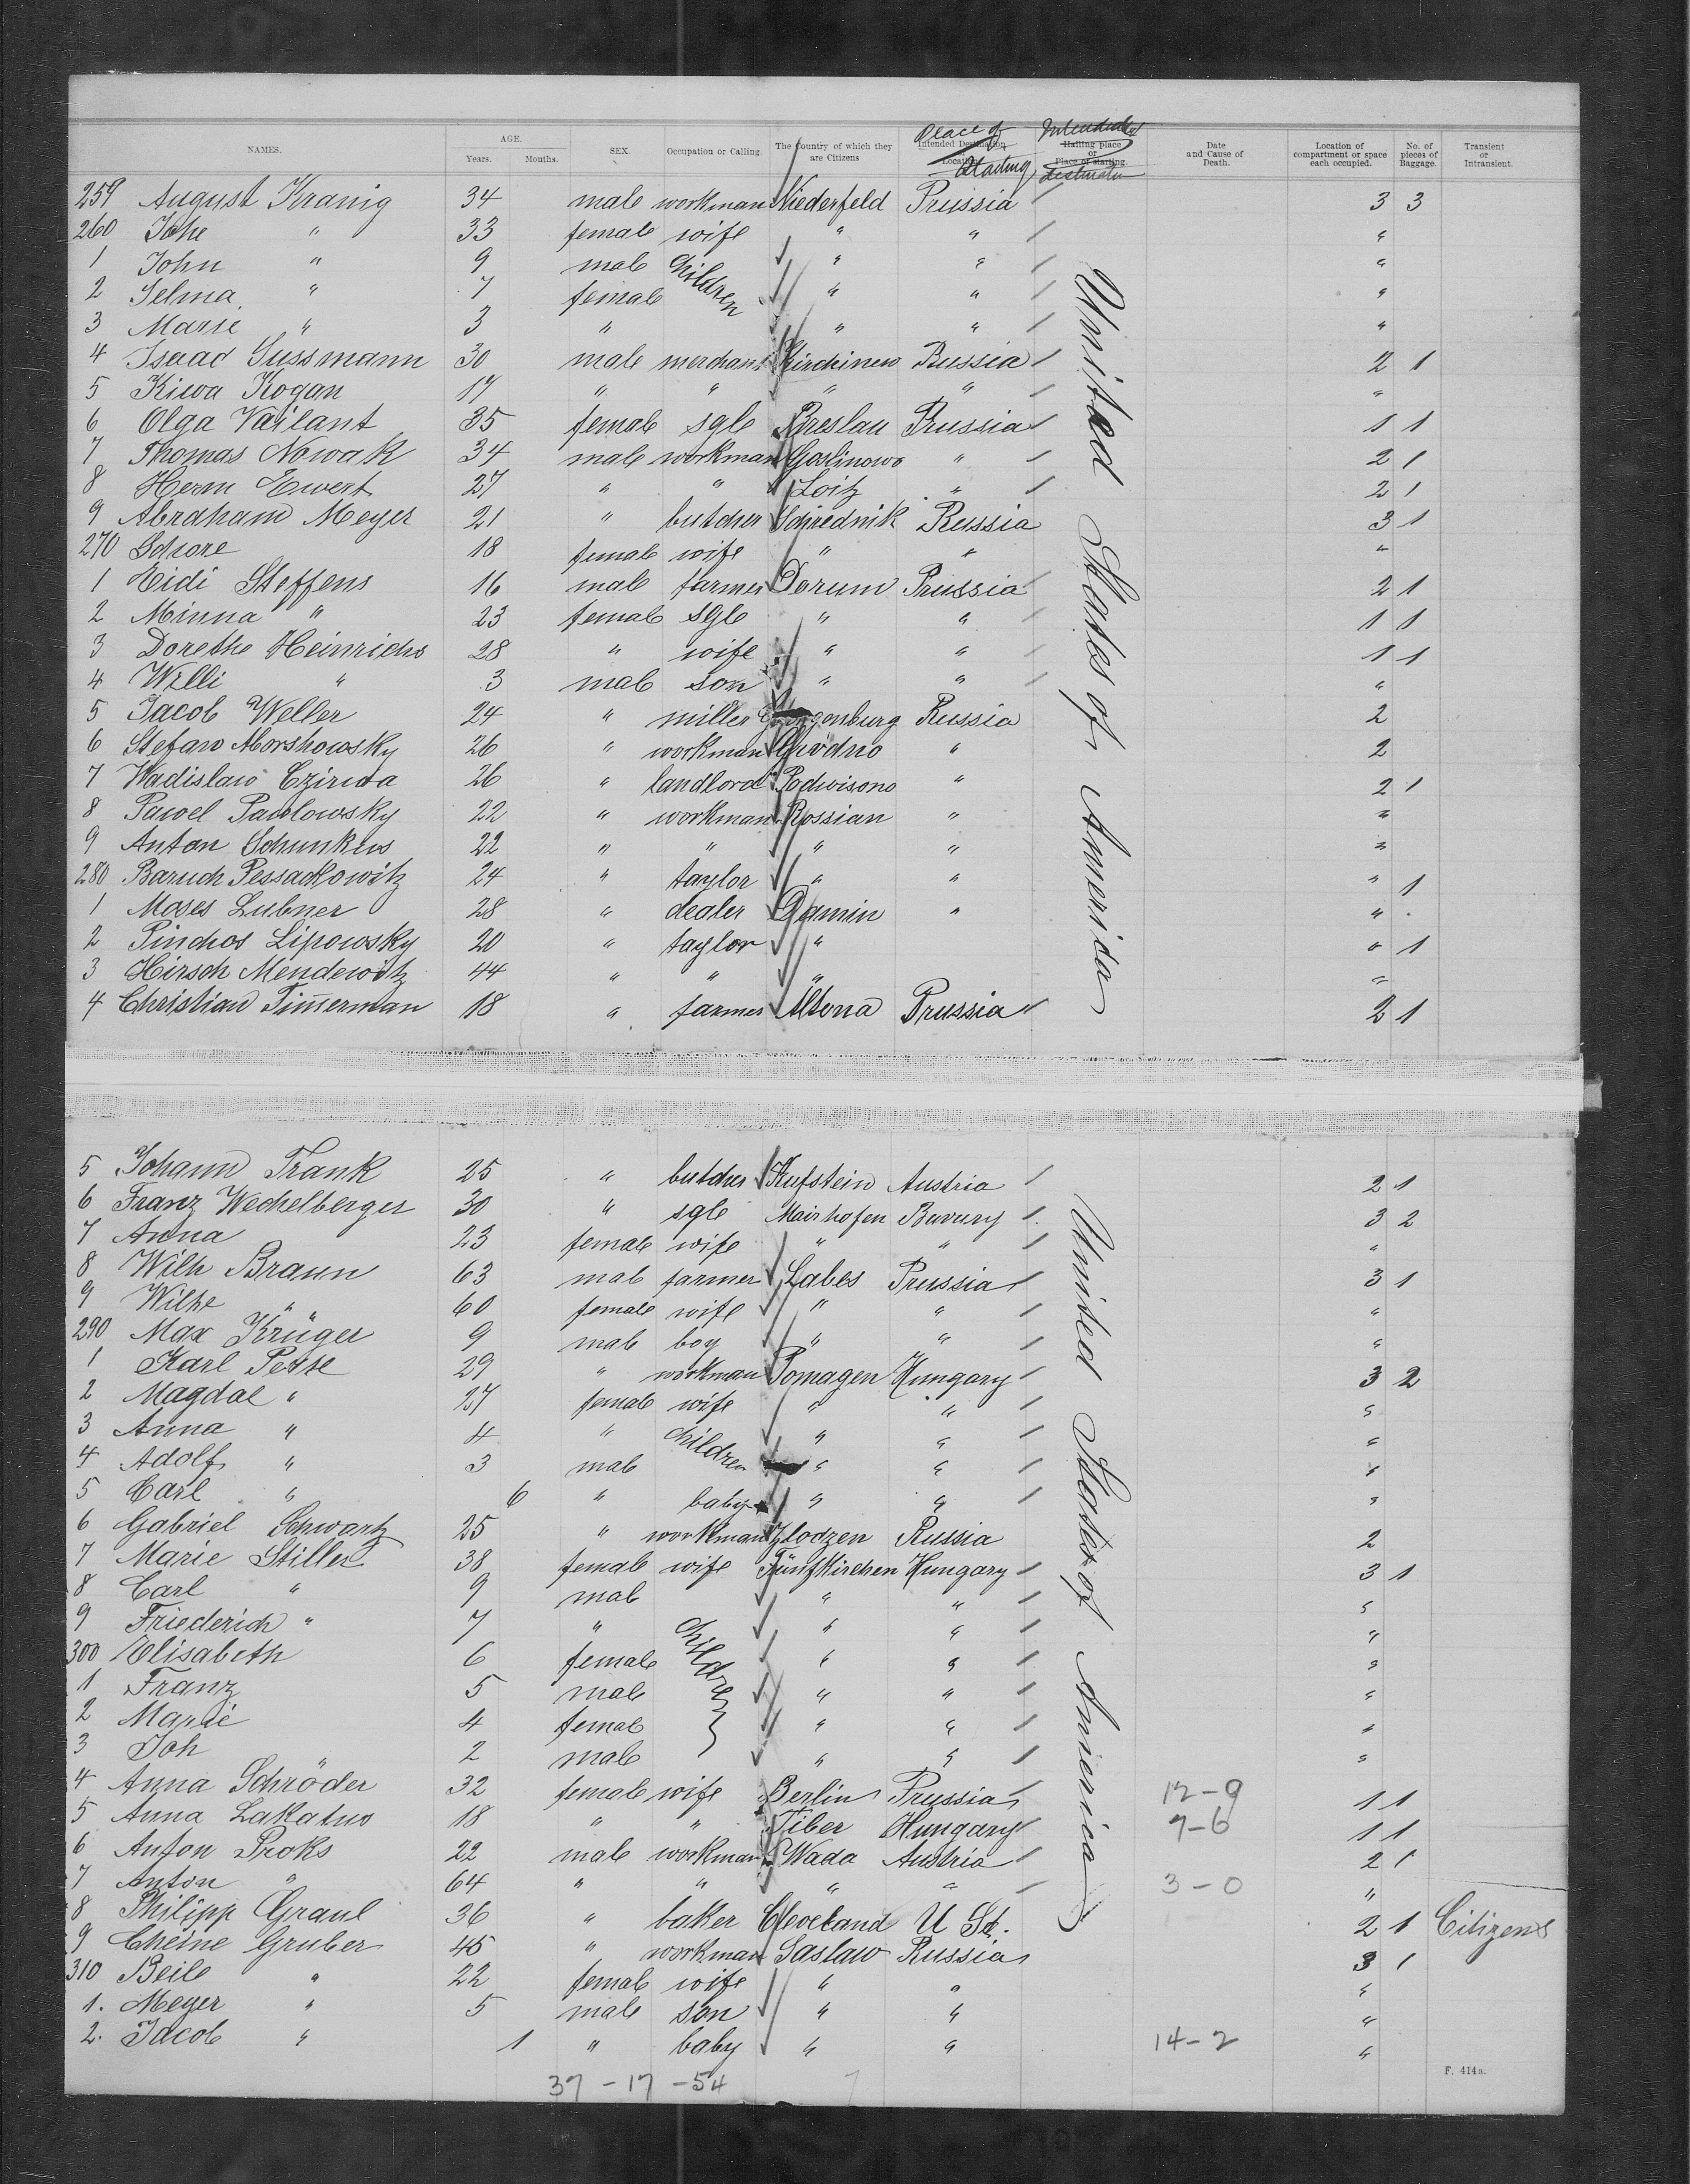 NAMES. AGE. Years. Months. SEX. Occupation or Calling. The Country of which they are Citizens Intended Destination Location Place of Starting Halting place or Place of starting Intended destination Date and Cause of Death. Location of compartment or space each occupied. No. of pieces of Baggage. Transient or Intransient.
259 August Kranig 34 male workman Niederfeld Prussia 3 3
260 Johe " 33 female wife " " "
1 John " 9 male children " " "
2 Selma " 7 female " " "
3 Marie " 3 " " " "
4 Isaac Sussmann 30 male merchant Kirchinew Russia 2 1
5 Kiwa Kogan 17 " " " " "
6 Olga Vailant 35 female sgle Breslau Prussia 1 1
7 Thomas Nowak 34 male workman Goslinowo " 2 1
8 Herm Ewert 27 " " Loitz " 2 1
9 Abraham Meyer 21 " butcher Schrednik Russia 3 1
270 Schore 18 female wife " " "
1 Eidi Steffens 16 male farmer Dorum Prussia 2 1
2 Minna " 23 female sgle " " 1 1
3 Dorethe Heinrichs 28 " wife " " 1 1
4 Willi " 3 male son " " "
5 Jacob Weller 24 " miller Russia 2
6 Stefan Morshowsky 26 " workman " 2
7 Wadislaw Czirwa 26 " landlord Podwisono " 2 1
8 Pawel Pawlowsky 22 " workman Rossian " "
9 Anton Schunkus 22 " " " " "
280 Baruch Pessachowitz 24 " taylor " " " 1
1 Moses Lubner 28 " dealer " "
2 Pinchos Lipowsky 20 " taylor " " 1
3 Hirsch Mendewitz 44 " " " "
4 Christian Timmerman 18 " farmer Altona Prussia 2 1
United States of America
5 Johann Frank 25 " butcher Kufstein Austria 2 1
6 Franz Wechelberger 30 " sgle Mairhofen Bavury 3 2
7 Anna 23 female wife " " "
8 Wilh Braun 63 male farmer Labes Prussia 3 1
9 Wilhe " 60 female wife " " "
290 Max Krüger 9 male boy " " "
1 Karl Petse 29 " workman Pomagen Hungary 3 2
2 Magdal " 27 female wife " " "
3 Anna " 4 " children " " "
4 Adolf " 3 male " " "
5 Carl " 6 " baby " " "
6 Gabriel Schwartz 25 " workman Zlodzen Russia 2
7 Marie Stiller 38 female wife Fünfkirchen Hungary 3 1
8 Carl " 9 male " " "
9 Friederich " 7 " children " " "
300 Elisabeth 6 female " " "
1 Franz 5 male " " "
2 Marie 4 female " " "
3 Joh 2 male " " "
4 Anna Schröder 32 female wife Berlin Prussia 12-9 1 1
5 Anna Lakatus 18 " " Tiber Hungary 7-6 1 1
6 Anton Proks 22 male workman Wada Austria 2 1
7 Anton " 64 " " " " 3-0 "
8 Philipp Graul 36 " baker Cleveland U St. 2 1 Citizens
9 Cheine Gruber 45 " workman Saslaw Russia 3 1
310 Beile " 22 female wife " " "
1. Meyer " 5 male son " " "
2. Jacob " 1 " baby " " 14-2 "
United States of America
37-17-54
F. 414a.